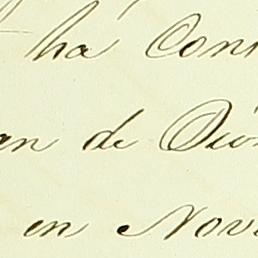 ha Con
an de Dio
en Nov